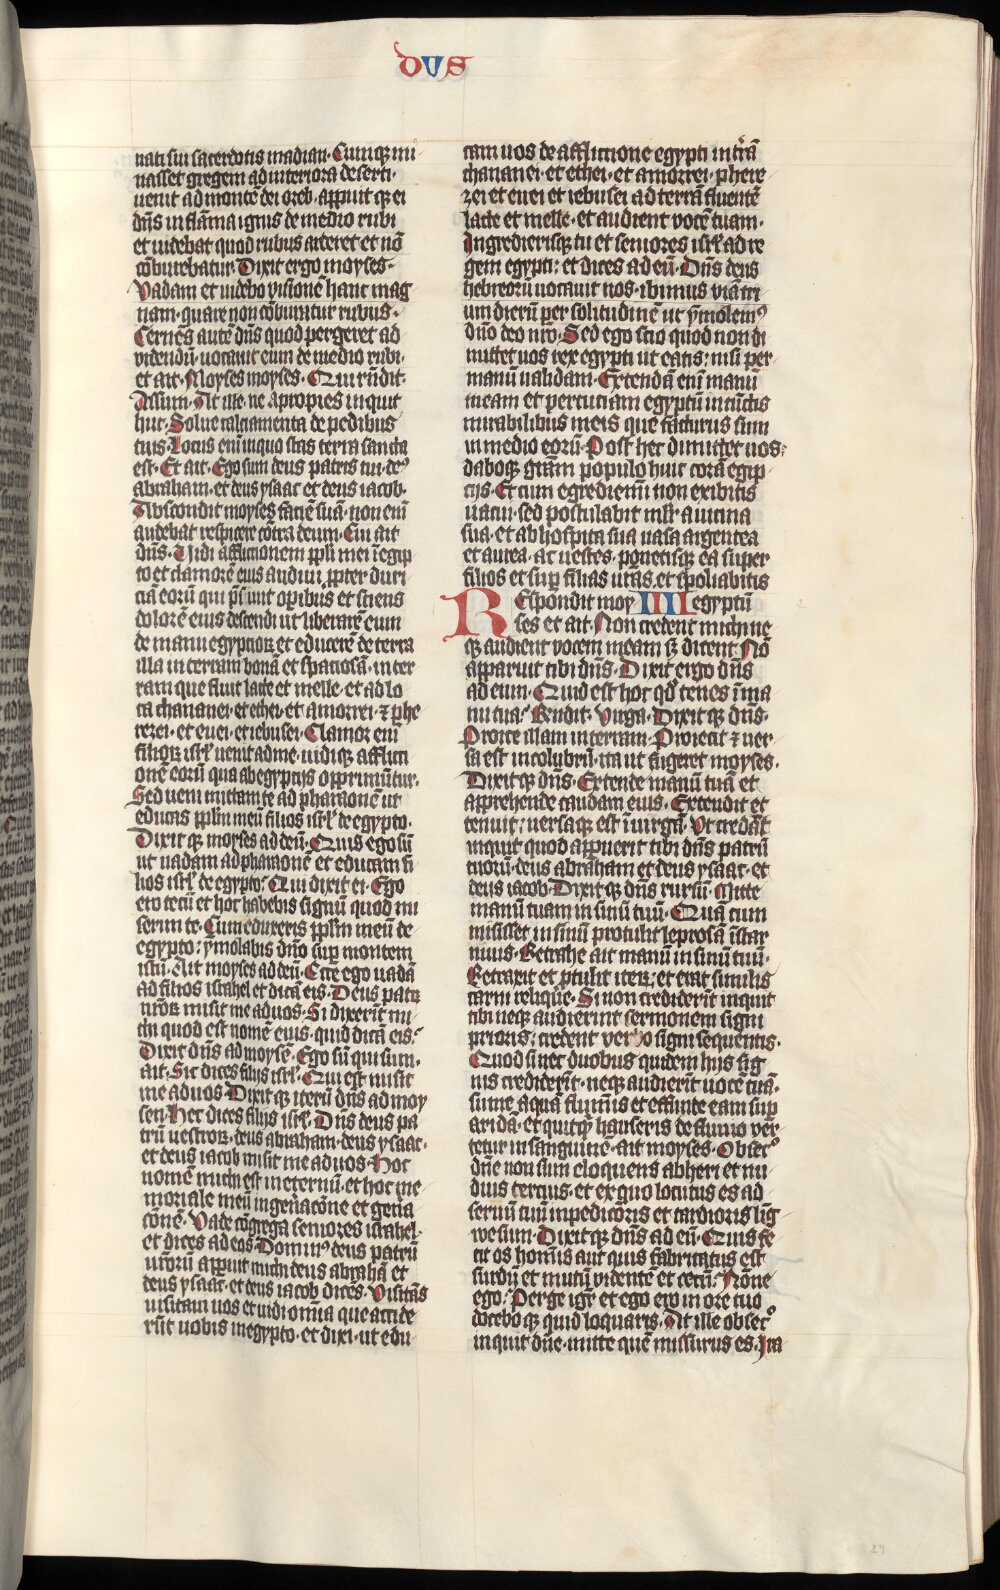 dus
nati sui sacerdotis madian. Cumq̢ mi
nasset gregem ad interiora deserti.
uenit ad montē dei oreb. appuit q̢ ei
dn̄s in flāma ignis de medio rubi
et uidebat quod rubus arderet et nō
cōburebatur. Dixit ergo moyses.
Vadam et uidebo uisionē hanc mag
nam. quare non cōburatur rubus.
Cernēs autē dn̄s quod pergeret ad
videndū. uocauit eum de medio rubi.
et ait. Moyses moyses. Qui rn̄dit.
Assum. At ille. ne apropies inquit
huc. Solue calciamenta de pedibus
tuis. Locus eni inquo stas terra sancta
est. Et ait. Ego sum deus patris tui. deꝰ
abraham. et deus ysaac et deus iacob.
Abscondit moyses faciē suā. non eni
audebat respicere cōtra deum. Cui ait
dn̄s. Vidi afflictionem pp̄li mei ī egip
to et clamorē eius audiui ꝓpter duri
ciā eorū qui p̄sunt oꝑibus et sciens
dolorē eius descendi ut liberarē eum
de manu egyptioꝝ et educerē de terra
illa in terram bonā et spaciosā. in ter
ram que fluit lacte et melle. et ad lo
ca chananei. et ethei. et amorrei. ⁊ phe
rezei. et euei. et iebusei. Clamor eni
filioꝝ isrl̄ uenit ad me. uidi q̢ afflicti
onē eorū qua ab egyptijs opprimūtur.
Sed ueni mittam te ad pharaonē ut
educas pp̄lm meū filios isrl̄ de egypto.
Dixit q̢ moyses ad deū. Quis ego sū
ut uadam ad pharaonē et educam fi
lios isrl̄ de egypto? Qui dixit ei. Ego
ero tecū et hoc habebis signū quod mi
serim te. Cum eduxeris pp̄lm meū de
egypto: ymolabis dn̄o suꝑ montem
istū. Ait moyses ad deū. Ecce ego uadā
ad filios israhel et dicā eis. Deus patꝝ
nr̄oꝝ misit me ad uos. Si dixerīt mi
chi quod est nomē eius. quid dicā eis?
Dixit dn̄s ad moysē. Ego sū qui sum.
ait. Sic dices filijs isrl̄. Qui est misit
me ad uos. Dixit q̢ iterū dn̄s ad moy
sen. Hec dices filijs isrl̄. Dn̄s deus pa
trū uestroꝝ. deus abraham. deus ysaac.
et deus iacob misit me ad uos. Hoc
nomē michi est in eternū. et hoc me
moriale meū in gen̄acōne et gen̄a
cōnē. Vade cōgrega seniores israhel.
et dices ad eos. Dominꝰ deus patrū
ur̄orū appuit michi deus abrahā et
deus ysaac. et deus iacob dicēs. Visitās
uisitaui uos et uidi omīa que accide
rūt uobis in egypto. et dixi. ut edu
cam uos de afflictione egypti in tr̄ā
chananei. et ethei. et amorrei. phere
zei et euei et iebusei ad terrā fluentē
lacte et melle. et audient vocē tuam.
Ingredierisq̢ tu et seniores isrl̄ ad re
gem egypti: et dices ad eū. Dn̄s deus
hebreorū uocauit nos. ibimus viā tri
um dierū per solitudinē ut ymolemꝰ
dn̄o deo nr̄o. Sed ego scio quod non di
mittet uos rex egypti ut eatis: nisi per
manū ualidam. Extendā eni manū
meam et percutiam egyptū in cūctis
mirabilibus meis que facturus sum
in medio eorū. Post hec dimittet uos:
daboq̢ grām populo huic corā egip
cijs. Et cum egredieminī non exibitis
uacui. sed postulabit ml̄r a uicina
sua. et ab hospita sua uasa argentea
et aurea. ac uestes. ponetisq̢ ea super
filios et suꝑ filias ur̄as. et spoliabitis
Respondit moy IIII egyptū
ses et ait. Non credent michi ne
q̢ audient vocem meam sꝫ dicent. Nō
apparuit tibi dn̄s. Dixit ergo dn̄s
ad eum. Quid est hoc qd̄ tenes ī ma
nu tua? Rn̄dit. Virga. Dixit q̢ dn̄s.
Proice illam in terram. Proiecit ⁊ uer
sa est in colubrū. ita ut fugeret moyses.
Dixit q̢ dn̄s. Extende manū tuā et
apprehende caudam eius. Extendit et
tenuit: uersaque est ī uirgā. Vt credāt
inquit quod appuerit tibi dn̄s patrū
tuorū. deus abraham et deus ysaac. et
deus iacob. Dixit q̢ dn̄s rursū. Mitte
manū tuam in sinū tuū. Quā cum
misisset in sinū protulit leprosā īstar
niuis. Retrahe ait manū in sinū tuū.
Retraxit et ꝓtulit iteꝝ. et erat similis
carni relique. Si non crediderīt inquit
tibi neq̢ audierint sermonem signi
prioris: credent verbo signi sequentis.
Quod si nec duobus quidem hijs sig
nis crediderīt. neq̢ audierīt uocē tuā.
sume aquā flumīs et effunde eam suꝑ
aridā. et quitq̢ hauseris de fluuio ver
tetur in sanguinē. ait moyses. Obsecꝰ
dn̄e non sum eloquens ab heri et nu
dius tercius. et ex quo locutus es ad
seruū tuū inpedicōris et tardioris lig
we sum. Dixit q̢ dn̄s ad eū. Quis fe
cit os homīs aut quis fabricatus est
surdū et mutū videntē et cecū? Nōne
ego? Perge igr̄ et ego ero in ore tuo
docebo q̢ quid loquaris. At ille obsecͦ
inquit dn̄e. mitte quē missurus es. Ira
24